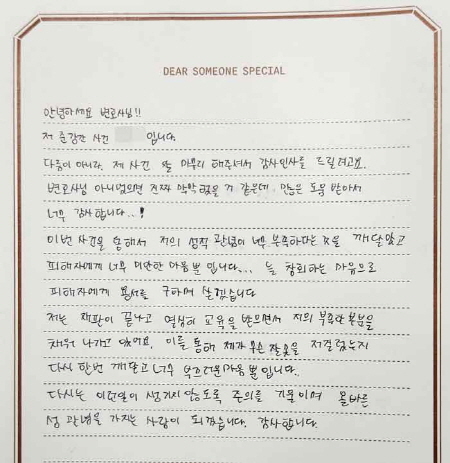 DEAR SOMEONE SPECIAL
안녕하세요 변호사님!!
저 준강간 사건 입니다.
다름이 아니라, 제 사건 잘 마무리 해주셔서 감사인사를 드릴려고요.
변호사님 아니었으면 진짜 막막했을 거 같은데 많은 도움 받아서
너무 감사합니다..!
이번 사건을 통해서 저의 성적 관념이 너무 부족하다는 것을 깨달았고
피해자에게 너무 미안한 마음뿐입니다... 늘 참회하는 마음으로
피해자에게 용서를 구하며 살겠습니다
저는 재판이 끝나고 열심히 교육을 받으면서 저의 부족한 부분을
채워 나가고 있어요. 이를 통해 제가 무슨 잘못을 저질렀는지
다시 한번 깨닫고 너무 부끄러운마음 뿐입니다.
다시는 이런일이 생기지 않도록 주의를 기울이며 올바른
성 관념을 가지는 사람이 되겠습니다. 감사합니다.